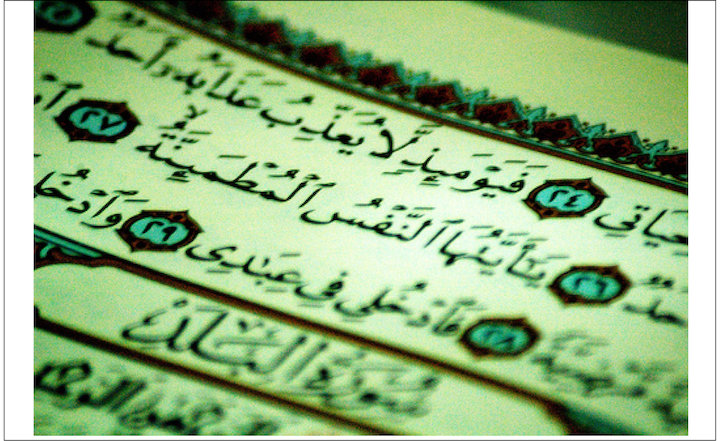 حَيَاتِي ٢٤ فَيَوْمَئِذٍ لَّا يُعَذِّبُ عَذَابَهُۥٓ أَحَدٌ
حَدٌ ٢٦ يَٰٓأَيَّتُهَا ٱلنَّفْسُ ٱلْمُطْمَئِنَّةُ ٢٧
٢٨ فَٱدْخُلِى فِى عِبَٰدِى ٢٩ وَٱدْخُلِ
سُورَةُ الْبَلَدِ